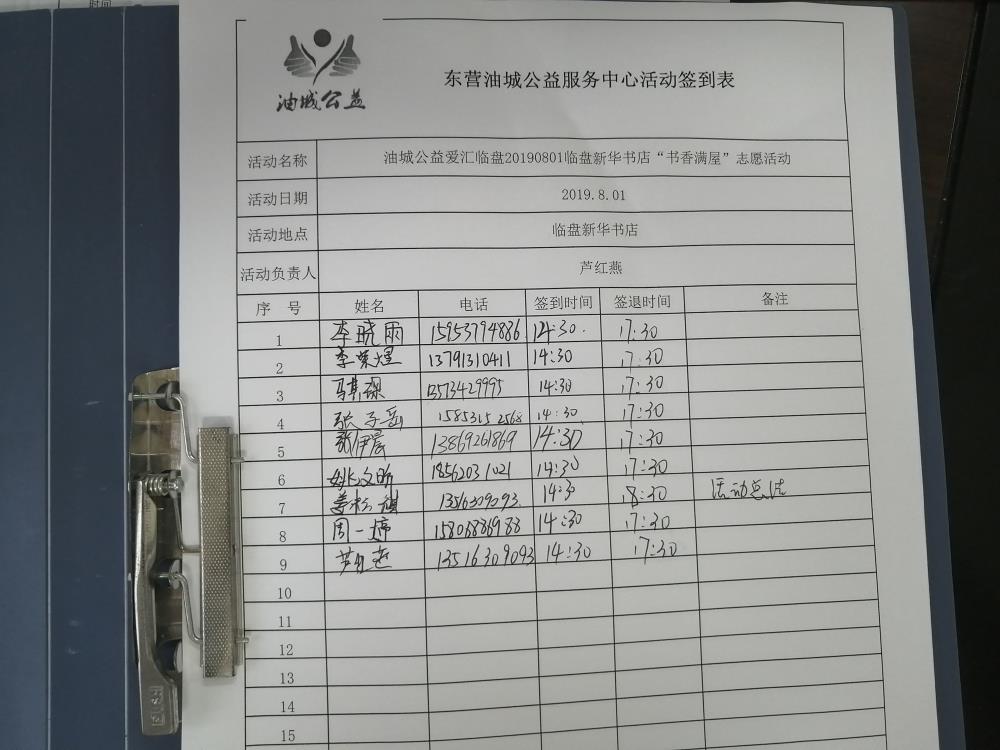 时间
油城公益
东营油城公益服务中心活动签到表
活动名称 油城公益爱汇临盘20190801临盘新华书店“书香满屋”志愿活动
活动日期 2019.8.01
活动地点 临盘新华书店
活动负责人 芦红燕
序 号 姓名 电话 签到时间 签退时间 备注
1 李晓雨 15953794886 14:30. 17:30
2 李荣煜 13791310411 14:30 17:30
3 13573429995 14:30 17:30
4 张子岳 15853152568 14:30 17:30
5 张伊晨 13869261869 14:30 17:30
6 姚文昕 18562031021 14:30 17:30
7 13516309093. 14:30 18:30 活动总结
8 周一婷 15806886988 14:30 17:30
9 芦红燕 13516309093 14:30 17:30
10
11
12
13
14
15